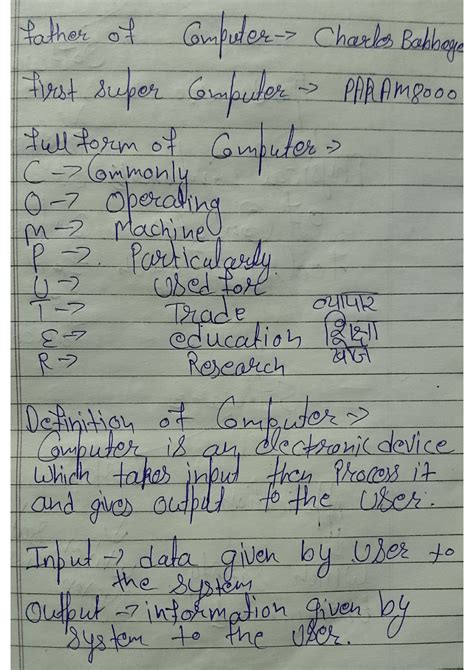 Father of Computer → Charles Babbage
First Super Computer → PARAM8000
Full form of Computer →
C → Commonly
O → Operating
M → Machine
P → Particularly
U → Used for
T → Trade व्यापार
E → education शिक्षा
R → Research खोज
Definition of Computer →
Computer is an electronic device
which takes input then Process it
and gives output to the User.
Input → data given by User to
the system
Output → information given by
system to the User.